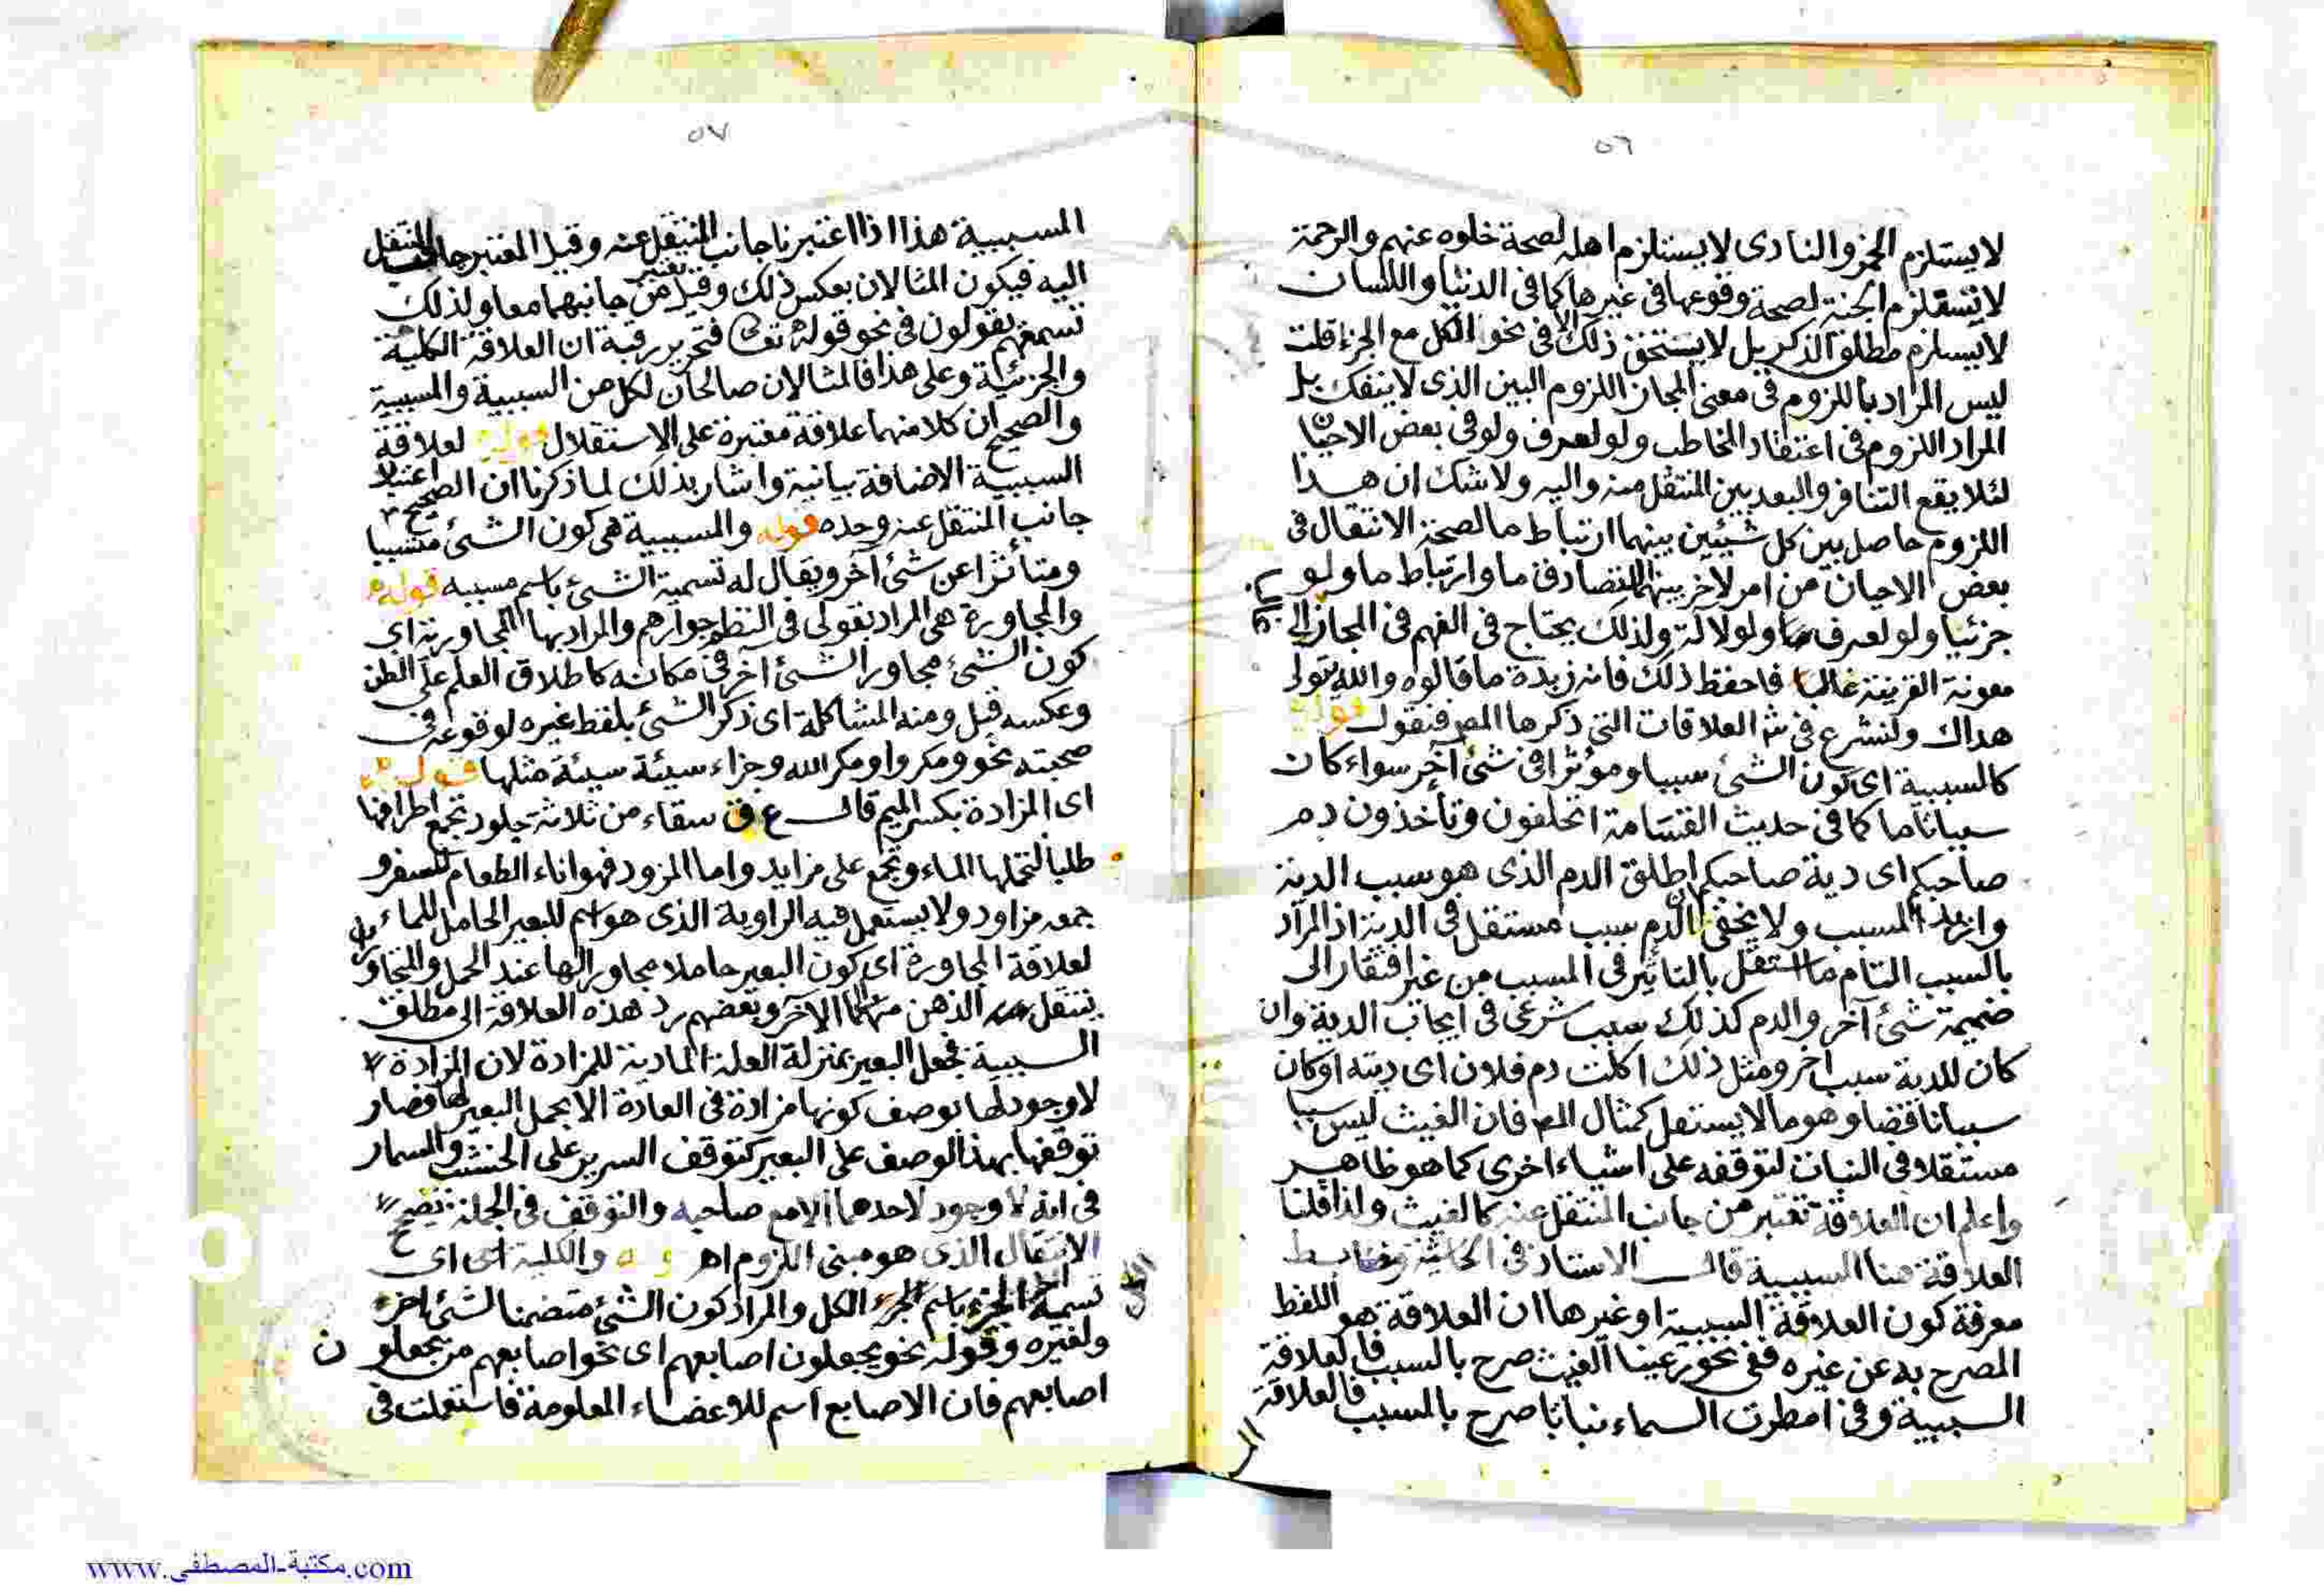 ٥٦
لا يستلزم الخمر والنادى لا يستلزم اهله لصحة خلوه عنهم والرحمة
لا تستلزم الجنة لصحة وقوعها فى غيرها كما فى الدنيا واللسان
لا يستلزم مطلق الذكر بل لا يستحق ذلك الا فى نحو الكل مع الجزء قلت
ليس المراد باللزوم فى معنى المجاز اللزوم البين الذى لا ينفك بل
المراد اللزوم فى اعتقاد المخاطب ولو لعرف ولو فى بعض الاحيان
لئلا يقع التنافر والبعد بين المنتقل منه واليه ولا شك ان هذا
اللزوم حاصل بين كل شيئين بينهما ارتباط ما لصحة الانتقال فى
بعض الاحيان من امر لآخر بينهما تصادق ما وارتباط ما ولو
جزئيا ولو لعرف ولذلك يحتاج فى الفهم فى المجاز الى
معونة القرينة غالبا فاحفظ ذلك فانه زبدة ما قالوه والله يتولى
هداك ولنشرع فى شر العلاقات التى ذكرها المص فنقول قوله
كالسببية اى كون الشئ سببا ومؤثرا فى شئ آخر سواء كان
سببا تاما كما فى حديث القسامة اتحلفون وتأخذون دم
صاحبكم اى دية صاحبكم اطلق الدم الذى هو سبب الدية
واريد المسبب ولا يخفى ان الدم سبب مستقل فى الدية اذ المراد
بالسبب التام ما استقل بالتاثير فى المسبب من غير افتقار الى
ضميمة شئ آخر والدم كذلك سبب شرعى فى ايجاب الدية وان
كان للدية سبب اخر ومثل ذلك اكلت دم فلان اى ديته او كان
سببا ناقصا وهو ما لا يستقل كمثال المص فان الغيث ليس سببا
مستقلا فى النبات لتوقفه على اشياء اخرى كما هو ظاهر
واعلم ان العلاقة تعتبر من جانب المنتقل عنه كالغيث ولذا قلنا
العلاقة هنا السببية قال الاستاذ فى الحاشية وضابط
معرفة كون العلاقة السببية او غيرها ان العلاقة هو اللفظ
المصرح به عن غيره ففى نحو رعينا الغيث صرح بالسبب فالعلاقة
السببية وفى امطرت السماء نباتا صرح بالمسبب فالعلاقة
٥٧
المسببية هذا اذا اعتبرنا جانب المنتقل عنه وقيل المعتبر جانب المنتقل
اليه فيكون المثالان بعكس ذلك وقيل يعتبر من جانبهما معا ولذلك
تسمعهم يقولون فى نحو قوله تعا فتحرير رقبة ان العلاقة الكلية
والجزئية وعلى هذا فالمثالان صالحان لكل من السببية والمسببية
والصحيح ان كلا منهما علاقة معتبرة على الاستقلال قوله لعلاقة
السببية الاضافة بيانية واشار بذلك لما ذكرنا ان الصحيح اعتبار
جانب المنتقل عنه وحده قوله والمسببية هى كون الشئ مسببا
ومتأثرا عن شئ آخر ويقال له تسمية الشئ باسم مسببه قوله
والمجاورة هى المراد بقولى فى النظم جوارهم والمراد بها المجاورية اى
كون الشئ مجاورا لشئ آخر فى مكانه كاطلاق العلم على الظن
وعكسه قيل ومنه المشاكلة اى ذكر الشئ بلفظ غيره لوقوعه فى
صحبته نحو ومكروا ومكر الله وجزاء سيئة سيئة مثلها قوله
اى المزادة بكسر الميم قال ع ق سقاء من ثلاثة جلود تجمع اطرافها
طلبا لتحملها الماء وتجمع على مزايد واما المزود فهو اناء الطعام للسفر و
جمعه مزاود ولا يستعمل فيه الراوية الذى هو اسم للبعير الحامل للماء
لعلاقة المجاورة اى كون البعير حاملا مجاورا لها عند الحمل والمتجاوران
ينتقل الذهن من احدهما الى الآخر وبعضهم رد هذه العلاقة الى مطلق
السببية فجعل البعير بمنزلة العلة المادية للمزادة لان المزادة
لا وجود لها بوصف كونها مزادة فى العادة الا بحمل البعير لها فصار
توقفها بهذا الوصف على البعير كتوقف السرير على الخشب والمسمار
فى انه لا وجود لاحدهما الا مع صاحبه والتوقف فى الجملة يصحح
الانتقال الذى هو مبنى اللزوم اهر قوله والكلية اى اى
تسمية الجزء باسم الكل والمراد كون الشئ متضمنا لشئ اخر
ولغيره وقوله نحو يجعلون اصابعهم اى نحو اصابعهم من يجعلون
اصابعهم فان الاصابع اسم للاعضاء المعلومة فاستعملت فى
www.مكتبة-المصطفى.com